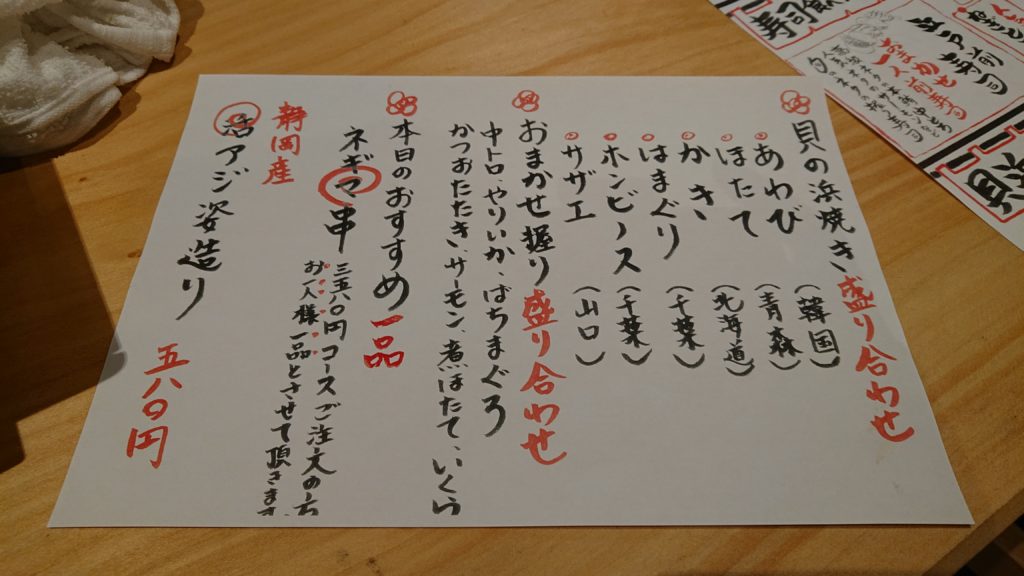 貝の浜焼き盛り合わせ
あわび（韓国）
ほたて（青森）
かき（北海道）
はまぐり（千葉）
ホンビノス（千葉）
サザエ（山口）
おまかせ握り盛り合わせ
中トロ、やりいか、ばちまぐろ
かつおたたき、サーモン、煮ほたて、いくら
本日のおすすめ一品
ネギマ串
三五八〇円コースご注文の方
お一人様一品とさせて頂きます
静岡産
活アジ姿造り
五八〇円
江戸前寿司
おまかせ
一人前寿司